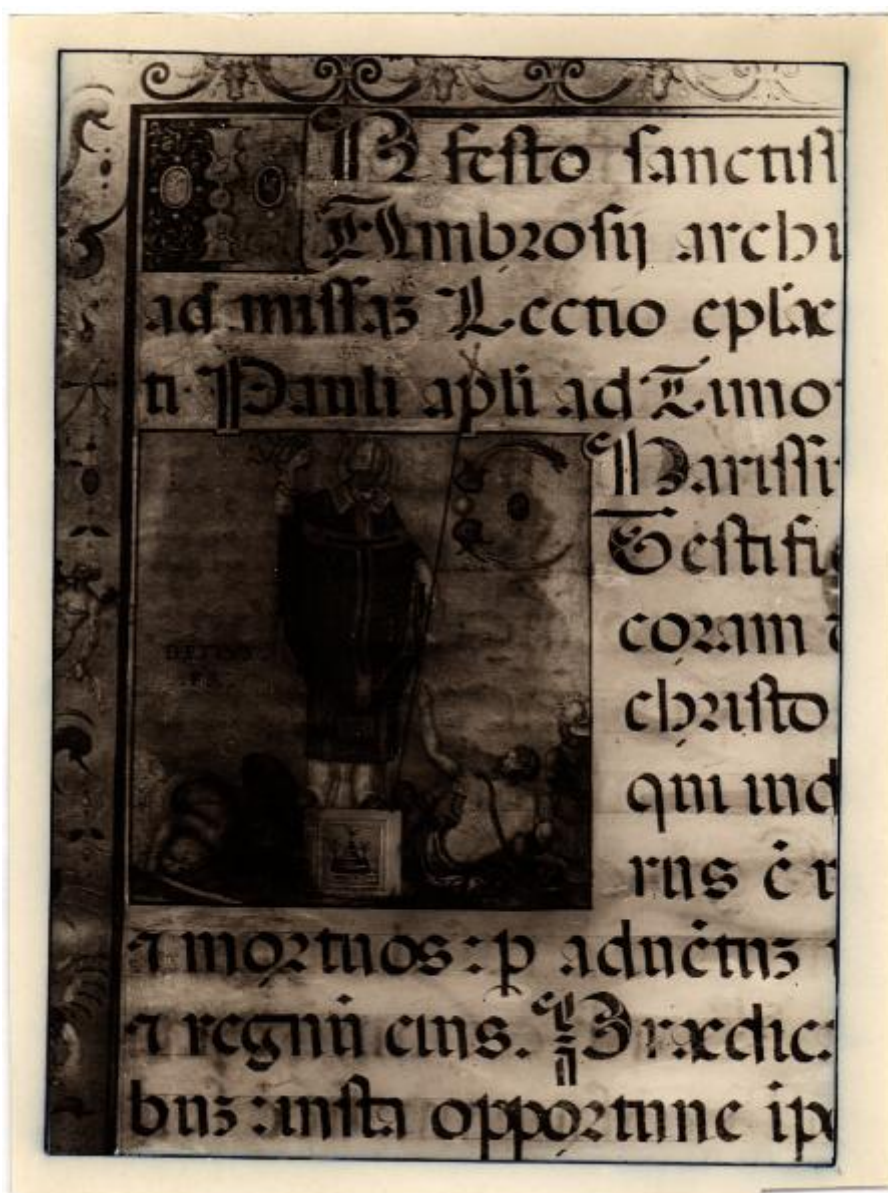 IN festo sanctiss
Ambrosij archi
ad missaʒ Lectio eplæ
ti Pauli apli ad Timo
Charissi
Testifi
coram
christo
qui iud
rus ē
⁊ mortuos: p aduētuʒ
⁊ regnū eius. Prædic
buʒ: insta opportune